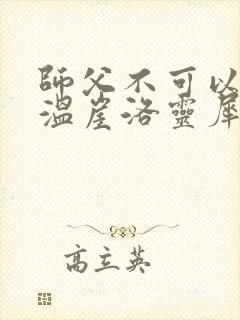 師父不可以
溫崖洛靈犀
高立英